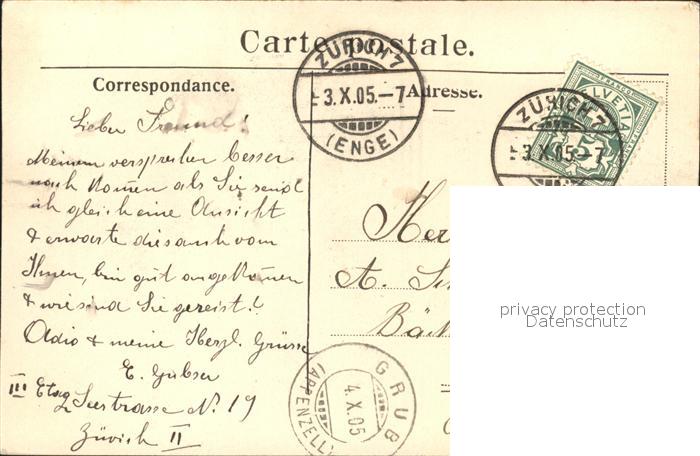 Carte postale.
Correspondance.
Adresse.
ZÜRICH 7
3.X.05.-7
(ENGE)
ZÜRICH 7
3.X.05.-7
HELVETIA
5
Lieber Freund!
Meinem versprechen besser
nach kommen als Sie send
ich gleich eine Ansicht
& erwarte dies auch vom
Ihnen, bin gut angekommen
& wie sind Sie gereist!
Adio & meine Herzl. Grüsse
E. Gubser
III Etag Seestrasse No. 19
Zürich II
Her
A. Sch
Bäck
GRUB
4.X.05
(APPENZELL)
privacy protection
Datenschutz